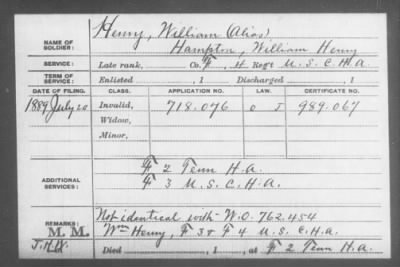 NAME OF SOLDIER: Henry, William (Alias)
Hampton, William Henry
SERVICE: Late rank, Co. F, 4 Reg't U.S.C.H.A.
TERM OF SERVICE: Enlisted , 1 Discharged , 1
DATE OF FILING. CLASS. APPLICATION NO. LAW. CERTIFICATE NO.
1889 July 20 Invalid, 718.076 989.067
Widow,
Minor,
ADDITIONAL SERVICES: F 2 Tenn H.A.
F 3 U.S.C.H.A.
REMARKS: Not identical with W.O. 762.454
M. M. Wm Henry, F 3 & F 4 U.S.C.H.A.
Died , 1 , at F 2 Tenn H.A.